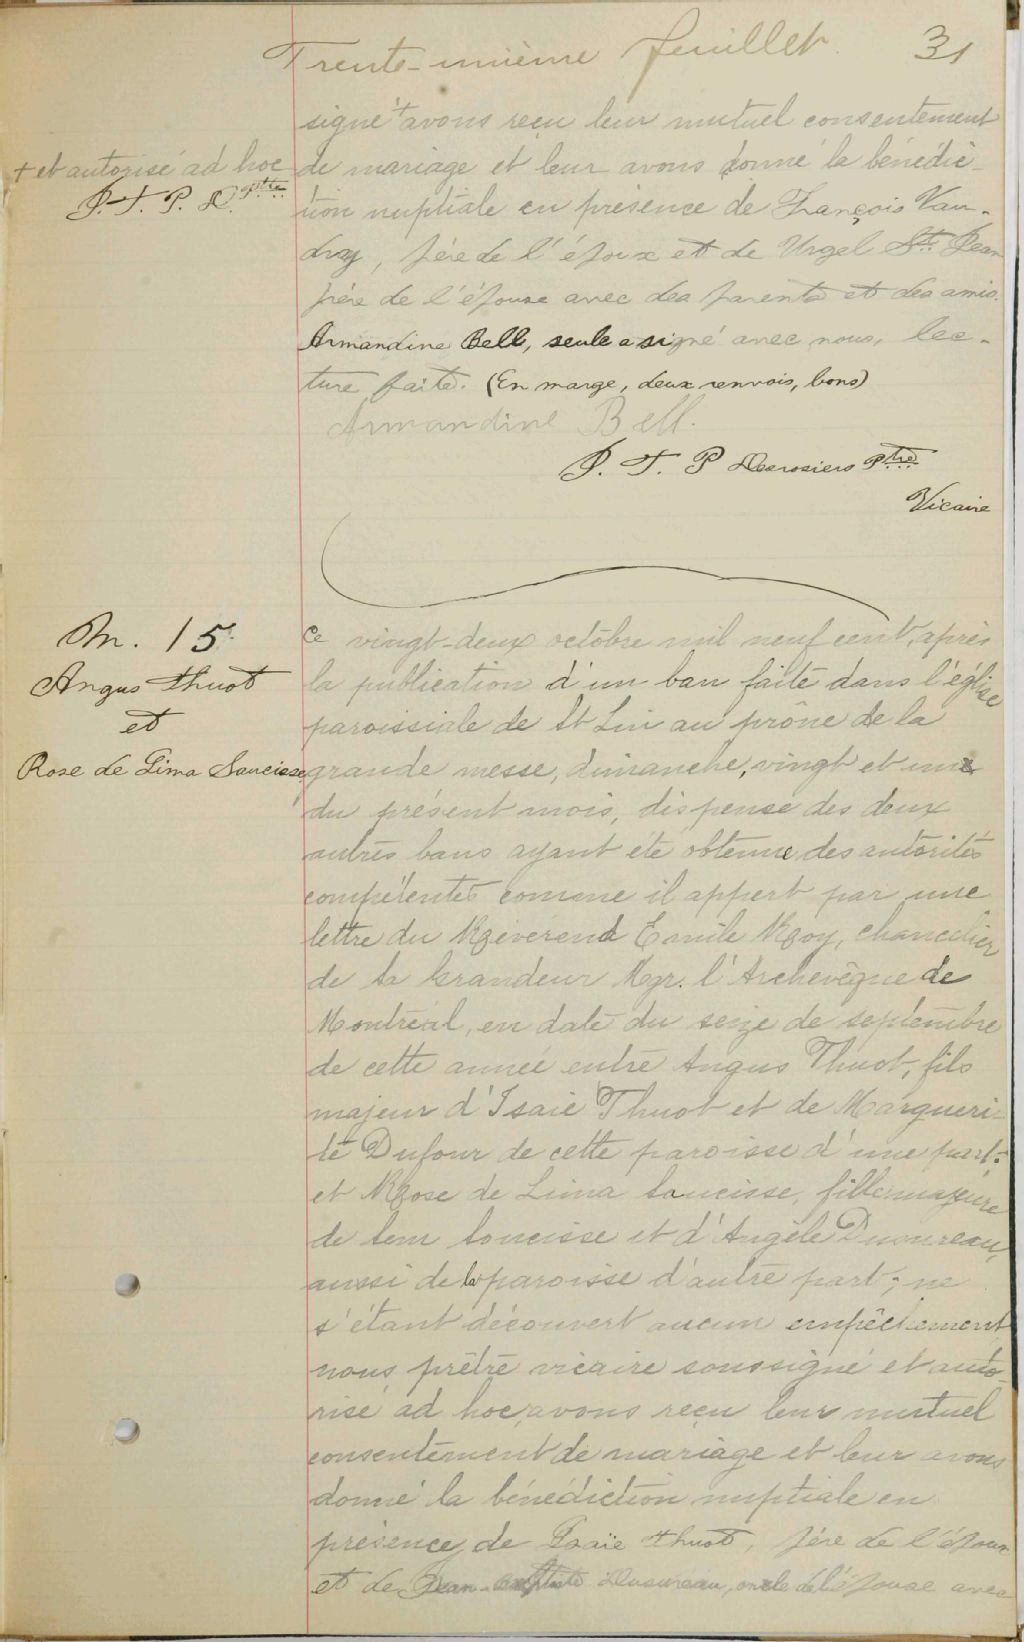 Trente-unième feuillet 31
signé + avons reçu leur mutuel consentement
+ et autorisé ad hoc
P. T. P. D. Ptre
de mariage et leur avons donné la bénédic-
tion nuptiale en présence de François Vau-
dry, père de l'époux et de Urgel St. Jean
père de l'épouse avec des parents et des amis.
Armandine Bell, seule a signé avec nous, lec-
ture faite. (En marge, deux renvois, bons)
Armandine Bell.
P. T. P Desrosiers Ptre
Vicaire
M. 15
Angus Thuot
et
Rose de Lima Saucisse
Ce vingt-deux octobre mil neuf cent, après
la publication d'un ban faite dans l'église
paroissiale de St Lin au prône de la
grande messe, dimanche, vingt et un
du présent mois, dispense des deux
autres bans ayant été obtenue des autorités
compétentes comme il appert par une
lettre du Révérend Emile Roy, chancelier
de Sa Grandeur Mgr. l'Archevêque de
Montréal, en date du seize de septembre
de cette année entre Angus Thuot, fils
majeur d'Isaïe Thuot et de Margueri-
te Dufour de cette paroisse d'une part;
et Rose de Lima Saucisse, fille majeure
de feu Saucisse et d'Angèle
aussi de la paroisse d'autre part; ne
s'étant découvert aucun empêchement
nous prêtre vicaire soussigné et auto-
risé ad hoc, avons reçu leur mutuel
consentement de mariage et leur avons
donné la bénédiction nuptiale en
présence de Isaïe Thuot, père de l'époux
et de Jean-Baptiste Dusureau, oncle de l'épouse avec